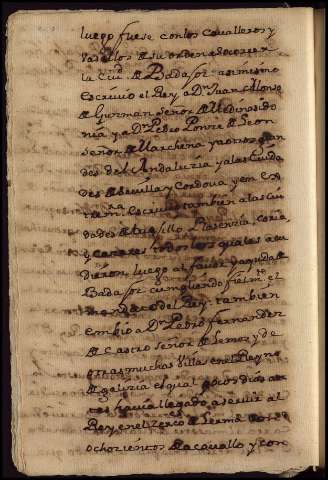 luego fuese con los Cavalleros y
Vasallos de su orden a socorrer
la Ciud. de Badajoz asimismo
escrivio el Rey a Dn Juan Alonso
de Guzman Señor de Medina Sido
nia y a Dn Pedro Ponze de Leon
Señor de Marchena y a otros gran
des del Andaluzia y a las Ciuda
des de Sevilla y Cordova y en Ex
trem.ra Escrivio tambien a las Ciu
dades de Trujillo Plasenzia, Coria,
y Cazeres todos los quales acu
dieron luego al favor y aiuda de
Badajoz cumpliendo fielm.te el
mandado del Rey tambien
embio a Dn Pedro fernandez
de Castro Señor de Lemos y de
otras muchas Villas en el Reyno
de galizia el qual pocos dias an
tes havia llegado a servir al
Rey en el Zerco de Lerma con
ochozientos de a cavallo y con